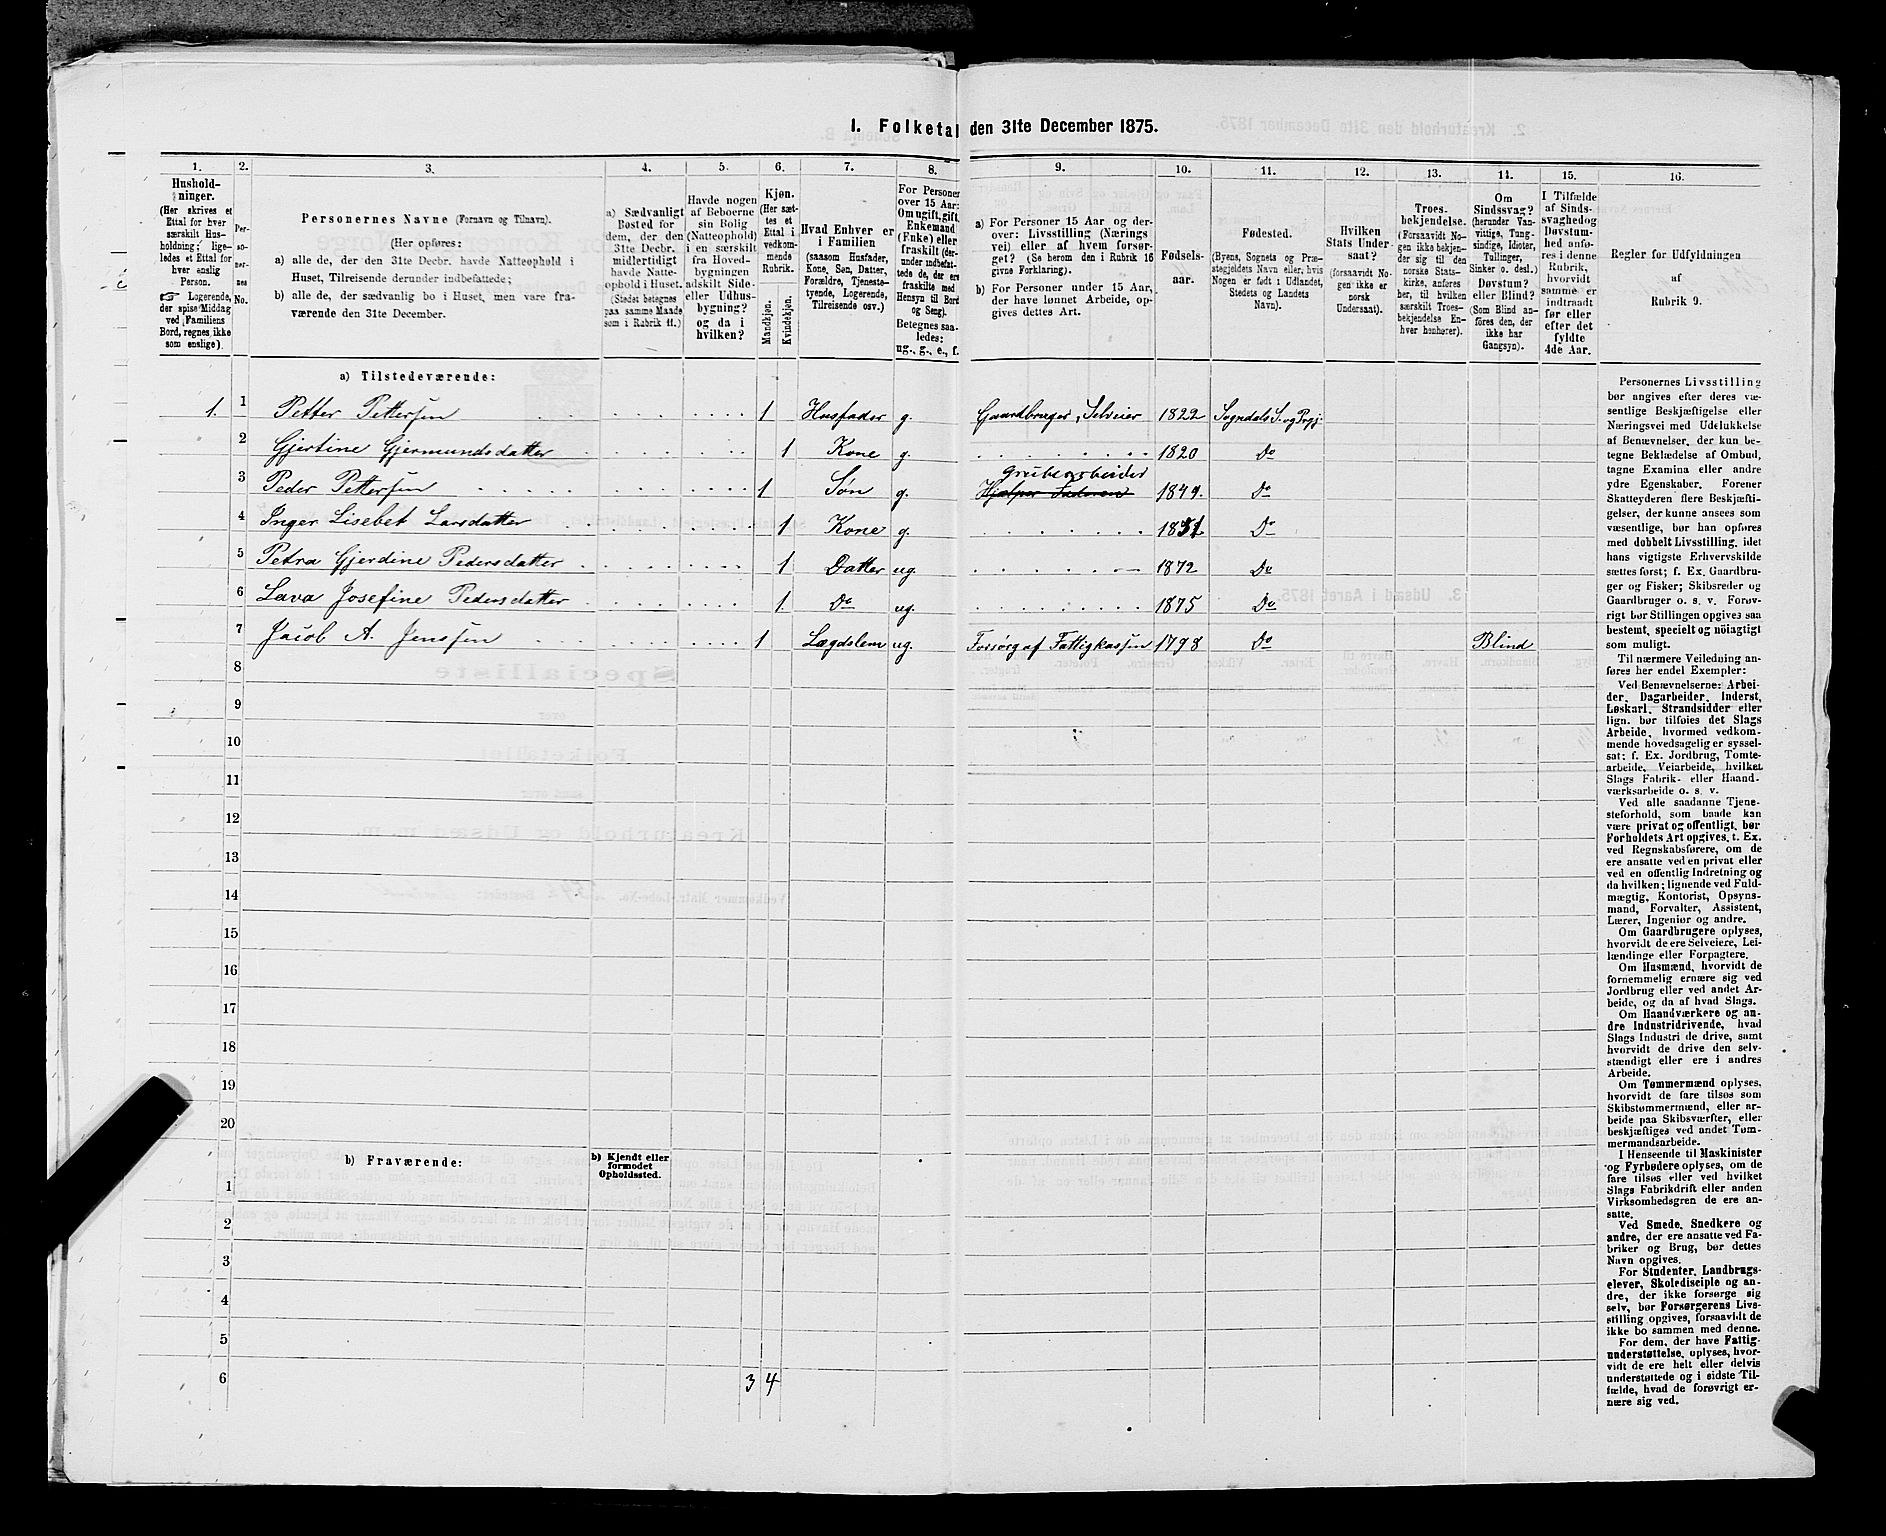 1. Folketal den 31te December 1875.
1. 2. 3. 4. 5. 6. 7. 8. 9. 10. 11. 12. 13. 14. 15. 16.
Hushold-
ninger.
(Her skrives et
Ettal for hver
særskilt Hus-
holdning; lige-
ledes et Ettal for
hver enslig
Person.
☞ Logerende,
der spise Middag
ved Familiens
Bord, regnes ikke
som enslige).
Per-
so-
ner-
nes
No.
Personernes Navne (Fornavn og Tilnavn).
(Her opføres:
a) alle de, der den 31te Decbr. havde Natteophold i
Huset, Tilreisende derunder indbefattede;
b) alle de, der sædvanlig bo i Huset, men vare fra-
værende den 31te December.
a) Sædvanligt
Bosted for
dem, der den
31te Decbr.
midlertidigt
havde Natte-
ophold i Huset.
(Stedet betegnes
paa samme Maade
som i Rubrik 11.)
Havde nogen
af Beboerne
sin Bolig
(Natteophold)
i en særskilt
fra Hoved-
bygningen
adskilt Side-
eller Udhus-
bygning?
og da i
hvilken?
Kjøn.
(Her sæt-
tes et
Ettal i
vedkom-
mende
Rubrik.
Mandkjøn.
Kvindekjøn.
Hvad Enhver er
i Familien
(saasom Husfader,
Kone, Søn, Datter,
Forældre, Tjeneste-
tyende, Logerende,
Tilreisende osv.)
For Personer
over 15 Aar:
Om ugift, gift,
Enkemand
(Enke) eller
fraskilt (der-
under indbefat-
tede de, der ere
fraskilte med
Hensyn til Bord
og Seng).
Betegnes saa-
ledes:
ug., g., e., f.
a) For Personer 15 Aar og der-
over: Livsstilling (Nærings-
vei) eller af hvem forsør-
get? (Se herom den i Rubrik 16
givne Forklaring).
b) For Personer under 15 Aar,
der have lønnet Arbeide, op-
gives dettes Art.
Fødsels-
aar.
Fødested.
(Byens, Sognets og Præ-
stegjeldets Navn eller, hvis
Nogen er født i Udlandet,
Stedets og Landets
Navn).
Hvilken
Stats Under-
saat?
(forsaavidt No-
gen ikke er
norsk
Undersaat).
Troes-
bekjendelse.
(Forsaavidt No-
gen ikke bekjen-
der sig til den
norske Stats-
kirke, anføres
her, til hvilken
særskilt Troes-
bekjendelse En-
hver henhører).
Om
Sindssvag?
(herunder Van-
vittige, Tung-
sindige, Idioter,
Tullinger,
Sinker o. desl.)
Døvstum?
eller Blind?
(Som Blind an-
føres den, der
ikke har
Gangsyn).
I Tilfælde
af Sinds-
svaghed og
Døvstum-
hed anfø-
res i denne
Rubrik,
hvorvidt
samme er
indtraadt
før eller
efter det
fyldte
4de Aar.
Regler for Udfyldningen
af
Rubrik 9.
a) Tilstedeværende:
1. 1 Petter Pettersen 1 Husfader g. Gaardbruger, Selveier 1822 Sogndals S. og Prgj.
2 Gjertine Gjermundsdatter 1 Kone g. 1820 Do
Grubearbeider
3 Peder Pettersen 1 Søn g. Hjælper Faderen 1849. Do
4 Inger Lisebet Larsdatter 1 Kone g. 1851 Do
5 Petra Gjerdine Pedersdatter 1 Datter ug. 1872 Do
6 Lava Josefine Pedersdatter 1. Do ug. 1875 Do
7 Jacob A. Jenssen 1 Lægdslem ug. Forsörg af Fattigkassen 1798 Do Blind
8
9
10
11
12
13
14
15
16
17
18
19
20
b) Fraværende:
b) Kjendt eller
formodet
Opholdssted.
1
2
3
4
5
6 3 4
Personernes Livsstilling
bør angives efter deres væ-
sentlige Beskjæftigelse eller
Næringsvei med Udelukkelse
af Benævnelser, der kun be-
tegne Beklædelse af Ombud,
tagne Examina eller andre
ydre Egenskaber. Forener
Skatteyderen flere Beskjæfti-
gelser, der kunne ansees som
væsentlige, bør han opføres
med dobbelt Livsstilling, idet
hans vigtigste Erhvervskilde
sættes først; f. Ex. Gaardbru-
ger og Fisker; Skibsreder og
Gaardbruger o. s. v. Forøv-
rigt bør Stillingen opgives saa
bestemt, specielt og nöiagtigt
som muligt.
Til nærmere Veiledning an-
føres her endel Exempler:
Ved Benævnelserne: Arbei-
der, Dagarbeider, Inderst,
Løskarl, Strandsidder eller
lign. bør tilføies det Slags
Arbeide, hvormed vedkom-
mende hovedsagelig er syssel-
sat; f. Ex. Jordbrug, Tomte-
arbeide, Veiarbeide, hvilket
Slags Fabrik- eller Haand-
værksarbeide o. s. v.
Ved alle saadanne Tjene-
steforhold, som baade kan
være privat og offentligt, bør
Forholdets Art opgives, t. Ex.
ved Regnskabsførere, om de
ere ansatte ved en privat eller
ved en offentlig Indretning og
da hvilken; lignende ved Fuld-
mægtig, Kontorist, Opsyns-
mand, Forvalter, Assistent,
Lærer, Ingeniør og andre.
Om Gaardbrugere oplyses,
hvorvidt de ere Selveiere, Lei-
lændinge eller Forpagtere.
Om Husmænd, hvorvidt de
fornemmelig ernære sig ved
Jordbrug eller ved andet Ar-
beide, og da af hvad Slags.
Om Haandværkere og an-
dre Industridrivende, hvad
Slags Industri de drive, samt
hvorvidt de drive den selv-
stændigt eller ere i andres
Arbeide.
Om Tømmermænd oplyses,
hvorvidt de fare tilsøs som
Skibstømmermænd, eller ar-
beide paa Skibsværfter, eller
beskjæftiges ved andet Tøm-
mermandsarbeide.
I Henseende til Maskinister
og Fyrbødere oplyses, om de
fare tilsøs eller ved hvilket
Slags Fabrikdrift eller anden
Virksomhedsgren de ere an-
satte.
Ved Smede, Snedkere og
andre, der ere ansatte ved Fa-
briker og Brug, bør dettes
Navn opgives.
For Studenter, Landbrugs-
elever, Skoledisciple og an-
dre, der ikke forsørge sig
selv, bør Forsørgerens Livs-
stilling opgives, forsaavidt de
ikke bo sammen med denne.
For dem, der have Fattig-
understøttelse, oplyses, hvor-
vidt de ere helt eller delvis
understøttede og i sidste Til-
fælde, hvad de forøvrigt er-
nære sig ved.